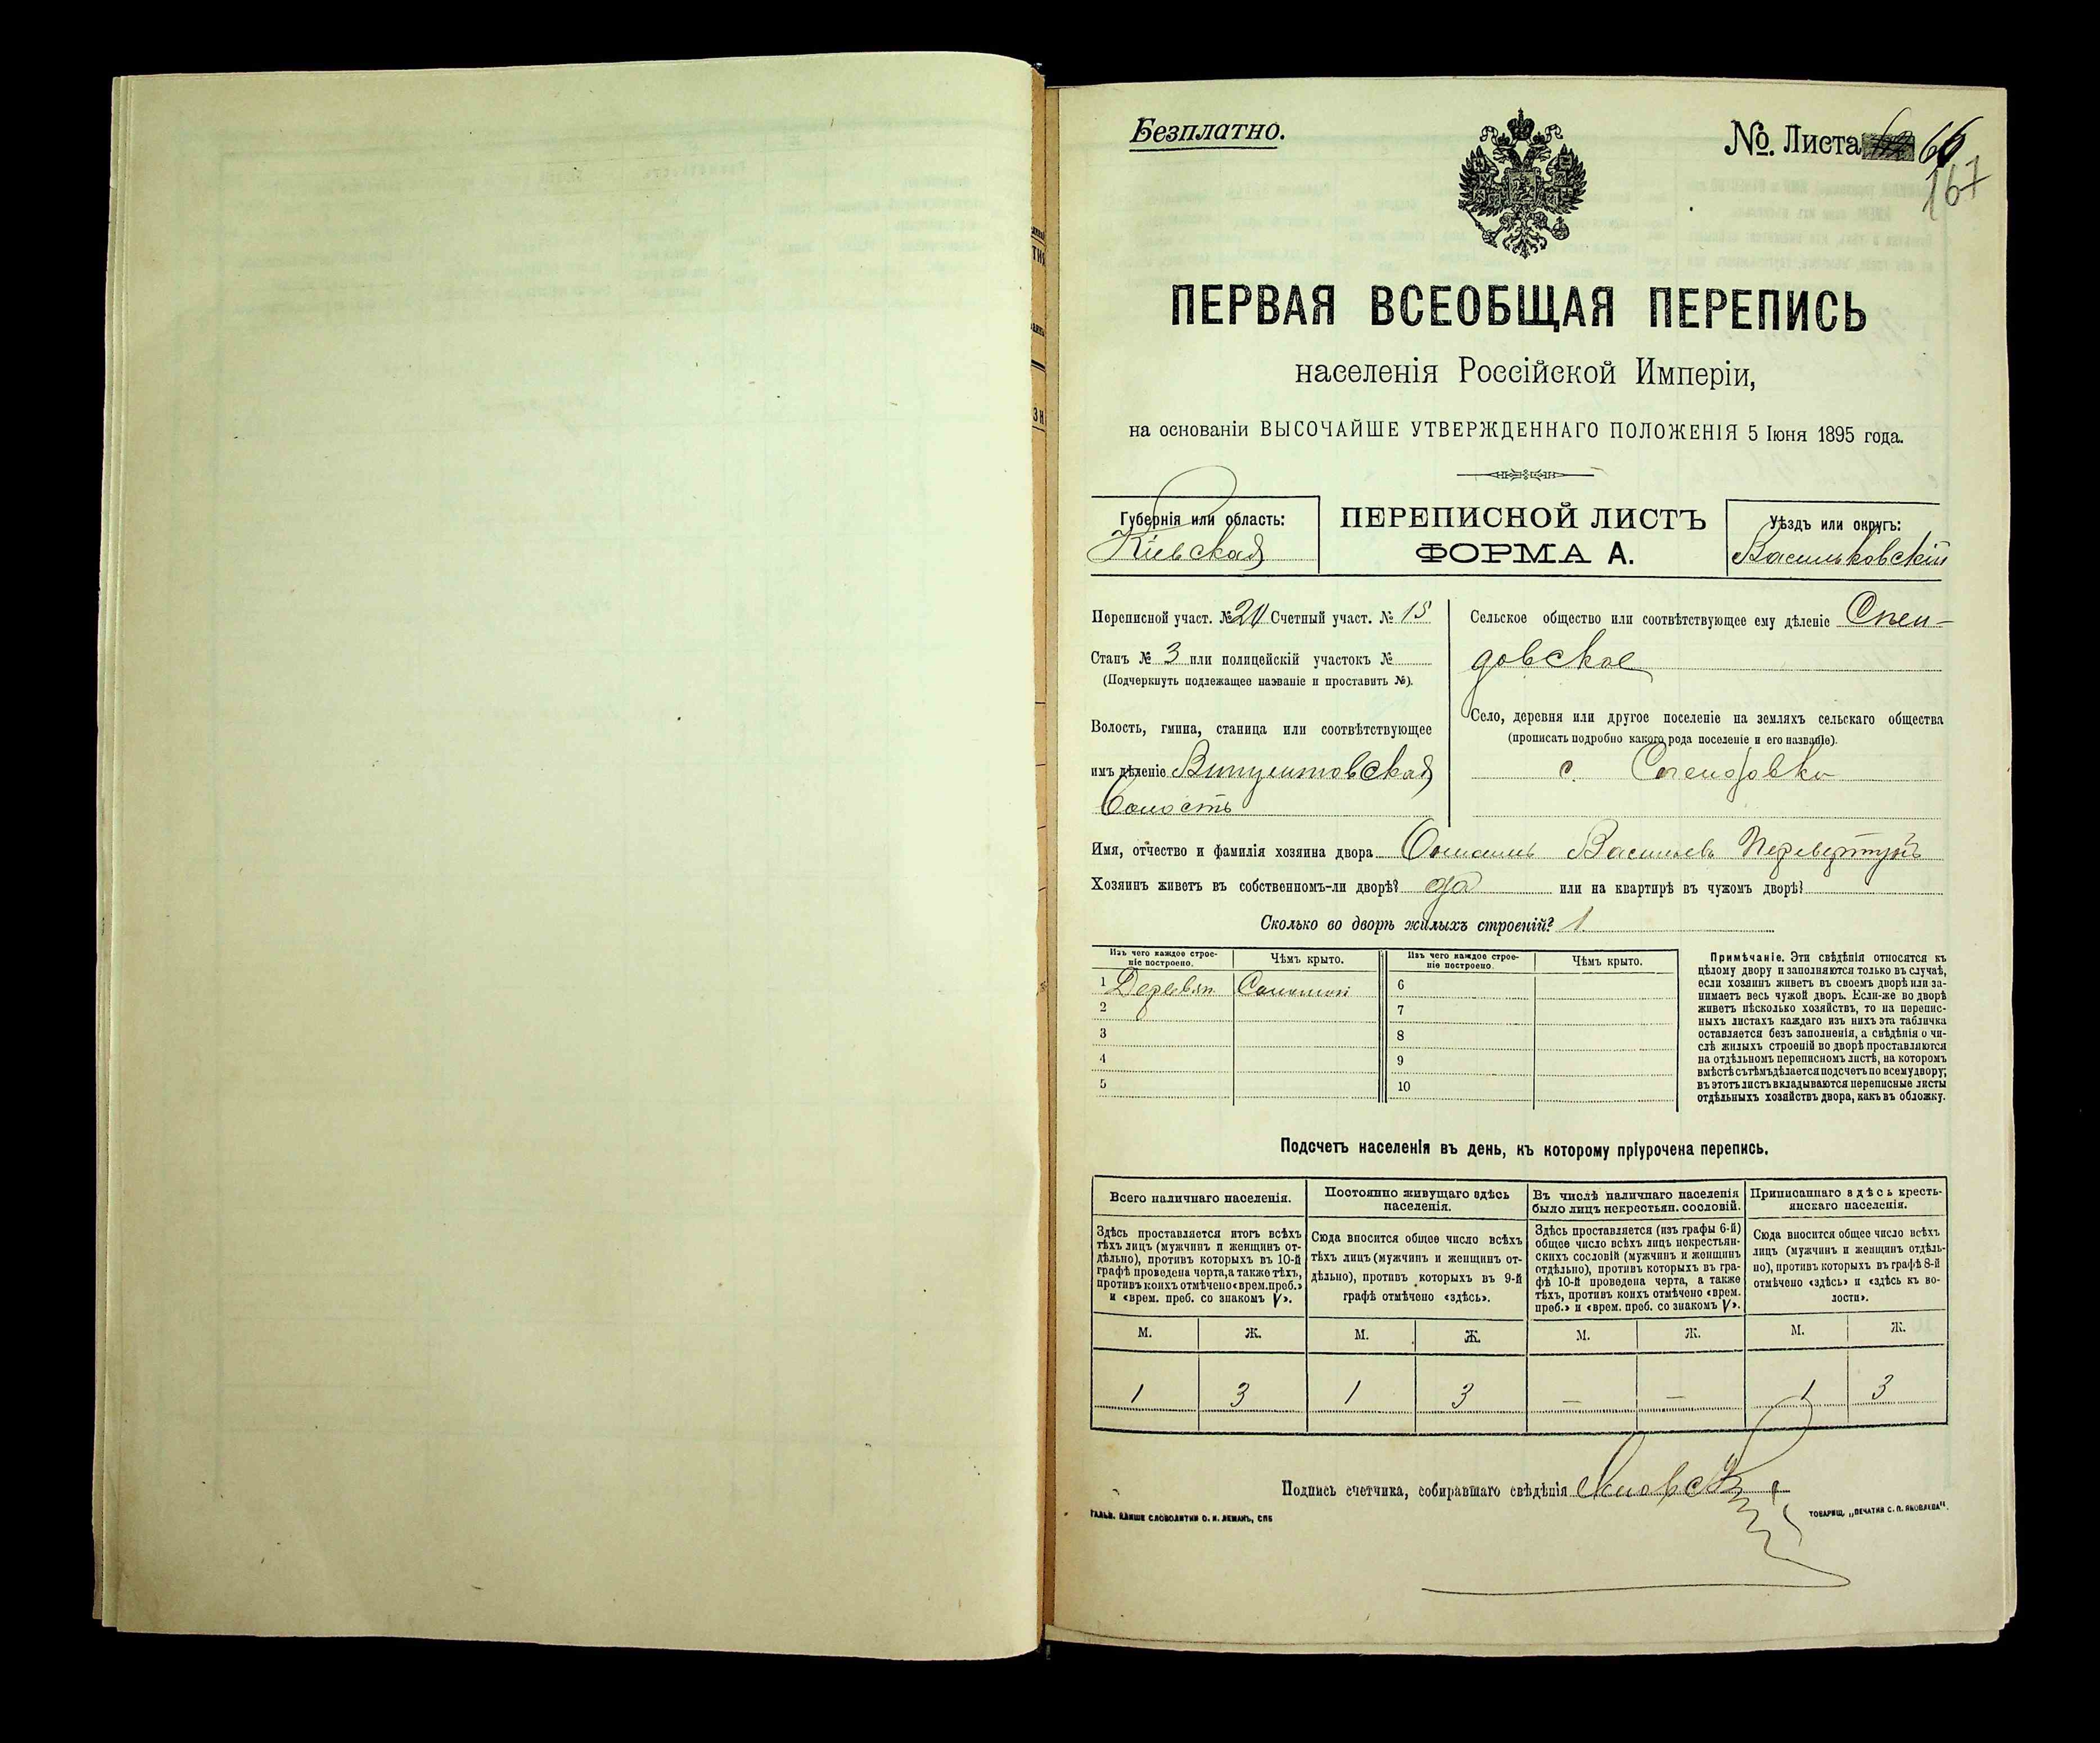 Безплатно.
№. Листа 66
167
ПЕРВАЯ ВСЕОБЩАЯ ПЕРЕПИСЬ
населенія Россійской Имперіи,
на основаніи ВЫСОЧАЙШЕ УТВЕРЖДЕННАГО ПОЛОЖЕНІЯ 5 Іюня 1895 года.
Губернія или область:
Кіевская
ПЕРЕПИСНОЙ ЛИСТЪ
ФОРМА А.
Уѣздъ или округъ:
Васильковскій
Переписной участ. № Счетный участ. № 15
Станъ № 3 или полицейскій участокъ №
(Подчеркнуть подлежащее названіе и проставить №).
Волость, гмина, станица или соотвѣтствующее
имъ дѣленіе
Волость
Сельское общество или соотвѣтствующее ему дѣленіе Спен-
довское
Село, деревня или другое поселеніе на земляхъ сельскаго общества
(прописать подробно какого рода поселеніе и его названіе).
с. Спендовка
Имя, отчество и фамилія хозяина двора Васильевъ Перевертунъ
Хозяинъ живетъ въ собственномъ-ли дворѣ? да или на квартирѣ въ чужомъ дворѣ?
Сколько во дворѣ жилыхъ строеній? 1
Изъ чего каждое строе-
ніе построено.
Чѣмъ крыто.
Изъ чего каждое строе-
ніе построено.
Чѣмъ крыто.
1 Деревян. Соломой 6
2 7
3 8
4 9
5 10
Примѣчаніе. Эти свѣдѣнія относятся къ
цѣлому двору и заполняются только въ случаѣ,
если хозяинъ живетъ въ своемъ дворѣ или за-
нимаетъ весь чужой дворъ. Если-же во дворѣ
живетъ нѣсколько хозяйствъ, то на перепис-
ныхъ листахъ каждаго изъ нихъ эта табличка
оставляется безъ заполненія, а свѣдѣнія о чи-
слѣ жилыхъ строеній во дворѣ проставляются
на отдѣльномъ переписномъ листѣ, на которомъ
вмѣстѣ съ тѣмъ дѣлается подсчетъ по всему двору;
въ этотъ листъ вкладываются переписные листы
отдѣльныхъ хозяйствъ двора, какъ въ обложку.
Подсчетъ населенія въ день, къ которому пріурочена перепись.
Всего наличнаго населенія.
Здѣсь проставляется итогъ всѣхъ
тѣхъ лицъ (мужчинъ и женщинъ от-
дѣльно), противъ которыхъ въ 10-й
графѣ проведена черта, а также тѣхъ,
противъ коихъ отмѣчено «врем. преб.»
и «врем. преб. со знакомъ V».
Постоянно живущаго здѣсь
населенія.
Сюда вносится общее число всѣхъ
тѣхъ лицъ (мужчинъ и женщинъ от-
дѣльно), противъ которыхъ въ 9-й
графѣ отмѣчено «здѣсь».
Въ числѣ наличнаго населенія
было лицъ некрестьян. сословій.
Здѣсь проставляется (изъ графы 6-й)
общее число всѣхъ лицъ некрестьян-
скихъ сословій (мужчинъ и женщинъ
отдѣльно), противъ которыхъ въ гра-
фѣ 10-й проведена черта, а также
тѣхъ, противъ коихъ отмѣчено «врем.
преб.» и «врем. преб. со знакомъ V».
Приписаннаго здѣсь кресть-
янскаго населенія.
Сюда вносится общее число всѣхъ
лицъ (мужчинъ и женщинъ отдѣль-
но), противъ которыхъ въ графѣ 8-й
отмѣчено «здѣсь» и «здѣсь къ во-
лости».
М. Ж. М. Ж. М. Ж. М. Ж.
1 3 1 3 — — 1 3
Подпись счетчика, собиравшаго свѣдѣнія
ГАЛЬВ. КЛИШЕ СЛОВОЛИТНИ О. И. ЛЕМАНЪ, СПБ
ТОВАРИЩ. „ПЕЧАТНЯ С. П. ЯКОВЛЕВА".